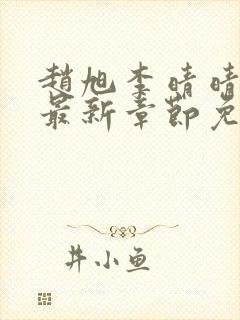 趙旭李晴晴
最新章節免
井小鱼